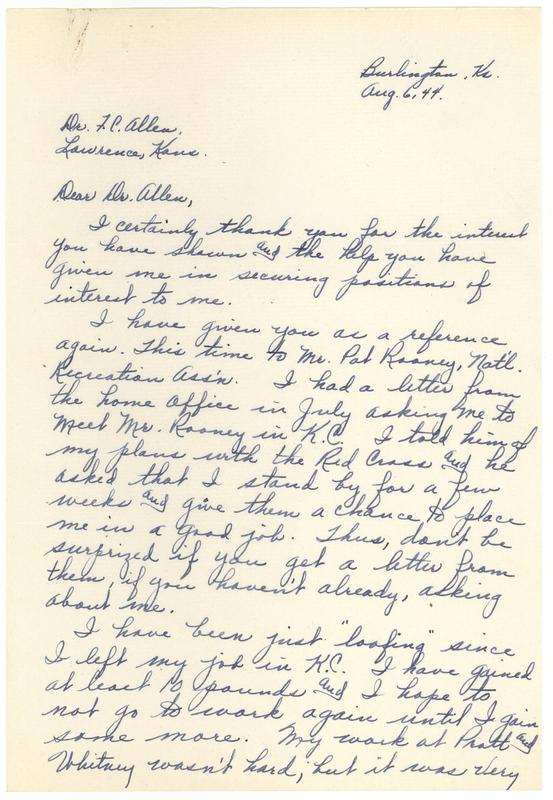 Burlington, Ks.
Aug. 6, 44.
Dr. F.C. Allen,
Lawrence, Kans.
Dear Dr. Allen,
I certainly thank you for the interest
you have shown and the help you have
given me in securing positions of
interest to me.
I have given you as a reference
again. This time to Mr. Pat Rooney, Nat'l.
Recreation Ass'n. I had a letter from
the home office in July asking me to
meet Mr. Rooney in K.C. I told him of
my plans with the Red Cross and he
asked that I stand by for a few
weeks and give them a chance to place
me in a good job. Thus, don't be
surprized if you get a letter from
them, if you haven't already, asking
about me.
I have been just "loafing" since
I left my job in K.C. I have gained
at least 10 pounds and I hope to
not go to work again until I gain
some more. My work at Pratt and
Whitney wasn't hard, but it was very